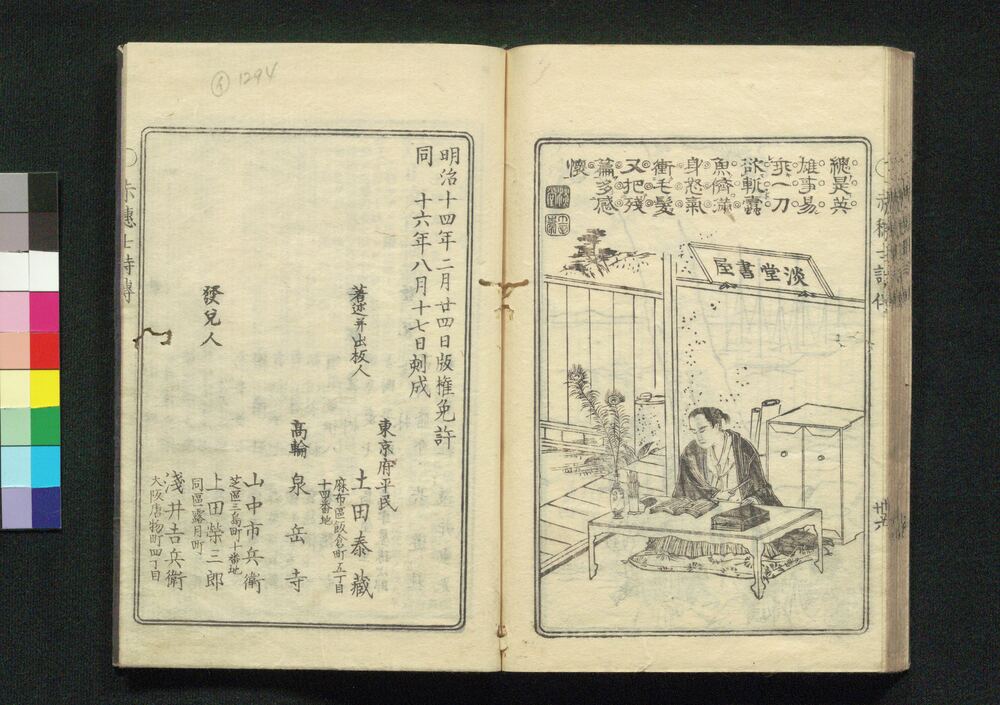 總是英
雄事易
乘一刀
欲斬蠧
魚儕滿
身怒氣
衝毛髮
又把残
篇多感
懷
淡堂書屋
廿六
明治十四年二月廿四日版権免許
同　十六年八月十七日刻成
著述并出板人
東京府平民
土田泰藏
麻布區飯倉町五丁目
十四番地
發兌人
高輪
泉岳寺
山中市兵衛
芝區三島町十番地
上田榮三郎
同區露月町
淺井吉兵衛
大阪唐物町四丁目
赤穗士詩傳
1294